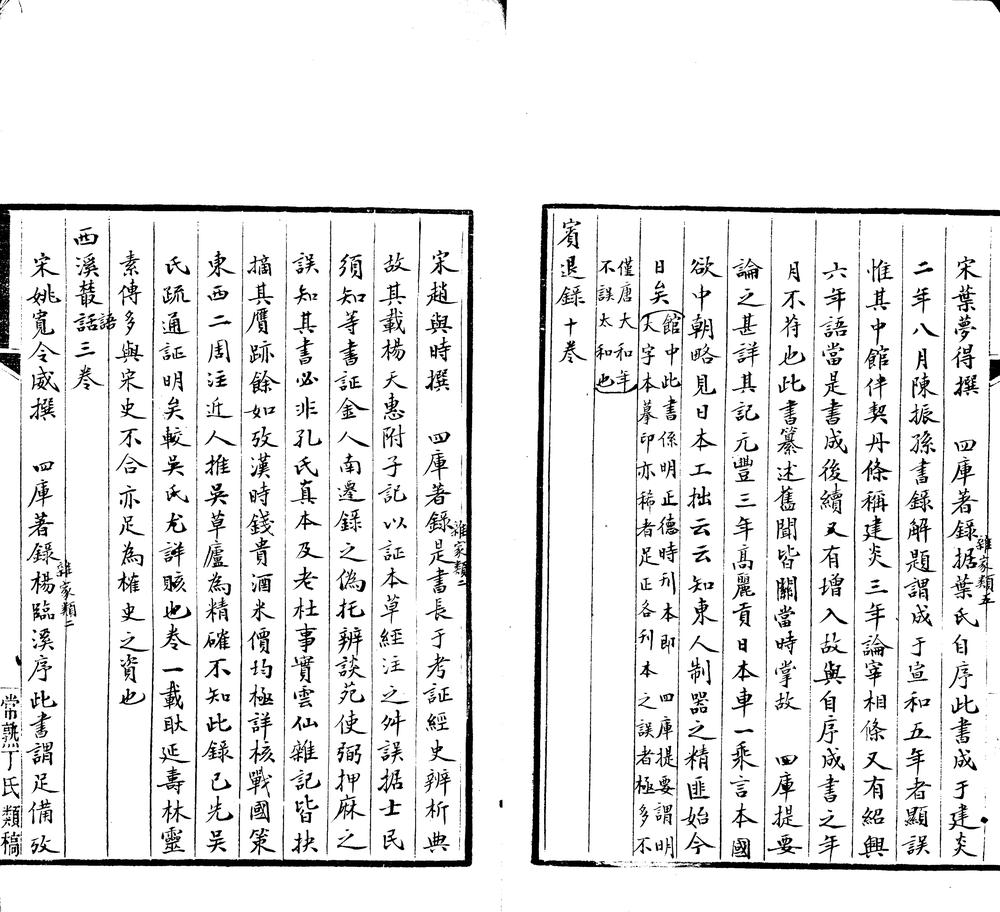 宋葉夢得撰　四庫著錄雜家類五据葉氏自序此書成于建炎
二年八月陳振孫書錄解題謂成于宣和五年者顯誤
惟其中館伴契丹條稱建炎三年論宰相條又有紹興
六年語當是書成後續又有增入故與自序成書之年
月不符也此書纂述舊聞皆關當時掌故　四庫提要
論之甚詳其記元豐三年高麗貢日本車一乘言本國
欲中朝略見日本工拙云云知東人制器之精匪始今
日矣
館中此書係明正德時刊本即　四庫提要謂明
大字本摹印亦稀者足正各刊本之誤者極多不
僅唐大和年
不誤太和也
賓退錄十卷
宋趙與時撰　四庫著錄雜家類二是書長于考証經史辨析典
故其載楊天惠附子記以証本草經注之舛誤据士民
須知等書証金人南遷錄之偽托辨談苑使弼押麻之
誤知其書必非孔氏真本及老杜事實雲仙雜記皆抉
摘其贋跡餘如攷漢時錢貴酒米價均極詳核戰國策
東西二周注近人推吳草廬為精確不知此錄已先吳
氏疏通証明矣較吳氏尤詳賅也卷一載耿延壽林靈
素傳多與宋史不合亦足為榷史之資也
西溪叢話語三卷
宋姚寬令威撰　四庫著錄雜家類二楊臨溪序此書謂足備攷
常熟丁氏類稿